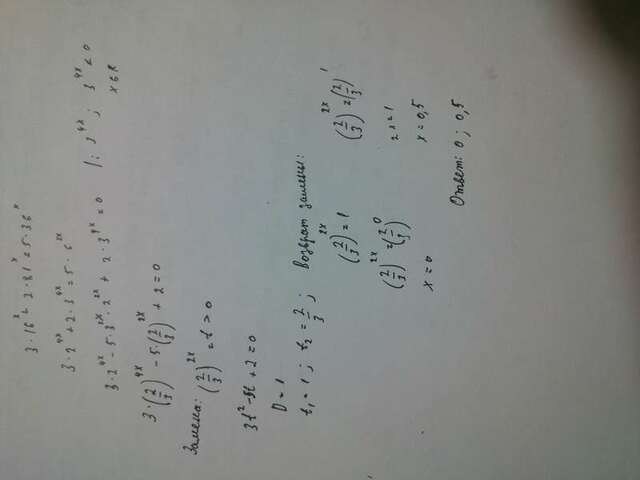 3·16ˣ + 2·81ˣ = 5·36ˣ
3·2⁴ˣ + 2·3⁴ˣ = 5·6²ˣ
3·2⁴ˣ - 5·3²ˣ·2²ˣ + 2·3⁴ˣ = 0 |: 3⁴ˣ; 3⁴ˣ ≠ 0
x ∈ R
3·(2/3)⁴ˣ - 5·(2/3)²ˣ + 2 = 0
Замена: (2/3)²ˣ = t > 0
3t² - 5t + 2 = 0
D = 1
t₁ = 1; t₂ = 2/3; Возврат замены:
(2/3)²ˣ = 1
(2/3)²ˣ = (2/3)⁰
x = 0
(2/3)²ˣ = (2/3)¹
2x = 1
x = 0,5
Ответ: 0; 0,5